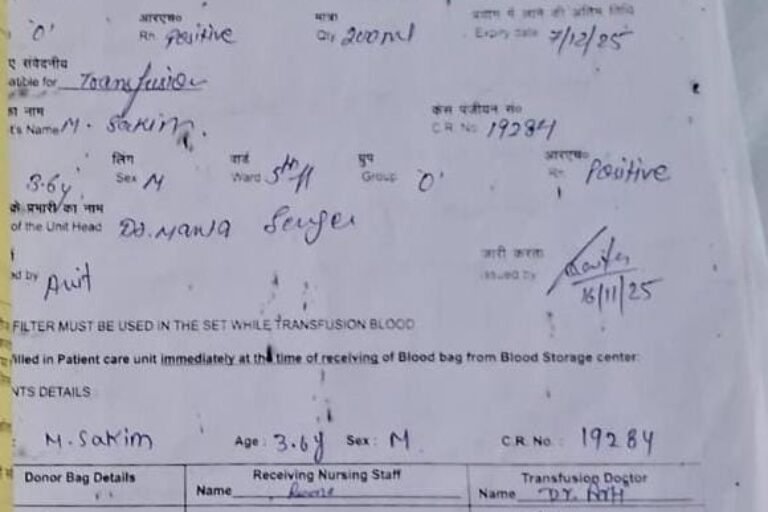 आरएच० मात्रा प्रयोग में लाने की अंतिम तिथि
'O' Rh. Positive Qty 200ml Expiry date 7/12/25
ए संवेदनीय
atible for Transfusion
का नाम केस पंजीयन सं०
t's Name M. Sakim. C.R. No. 19284
लिंग वार्ड ग्रुप आरएच०
3.6y Sex M Ward 5th fl Group 'O' Rh. Positive
के प्रभारी का नाम
of the Unit Head Dr.
जारी करता
ed by Issued by
16/11/25
FILTER MUST BE USED IN THE SET WHILE TRANSFUSION BLOOD
filled in Patient care unit immediately at the time of receiving of Blood bag from Blood Storage center:
NTS DETAILS
: M. Sakim Age : 3.6y Sex : M C.R. No. : 19284
Donor Bag Details Receiving Nursing Staff Transfusion Doctor
Name Name Dr.